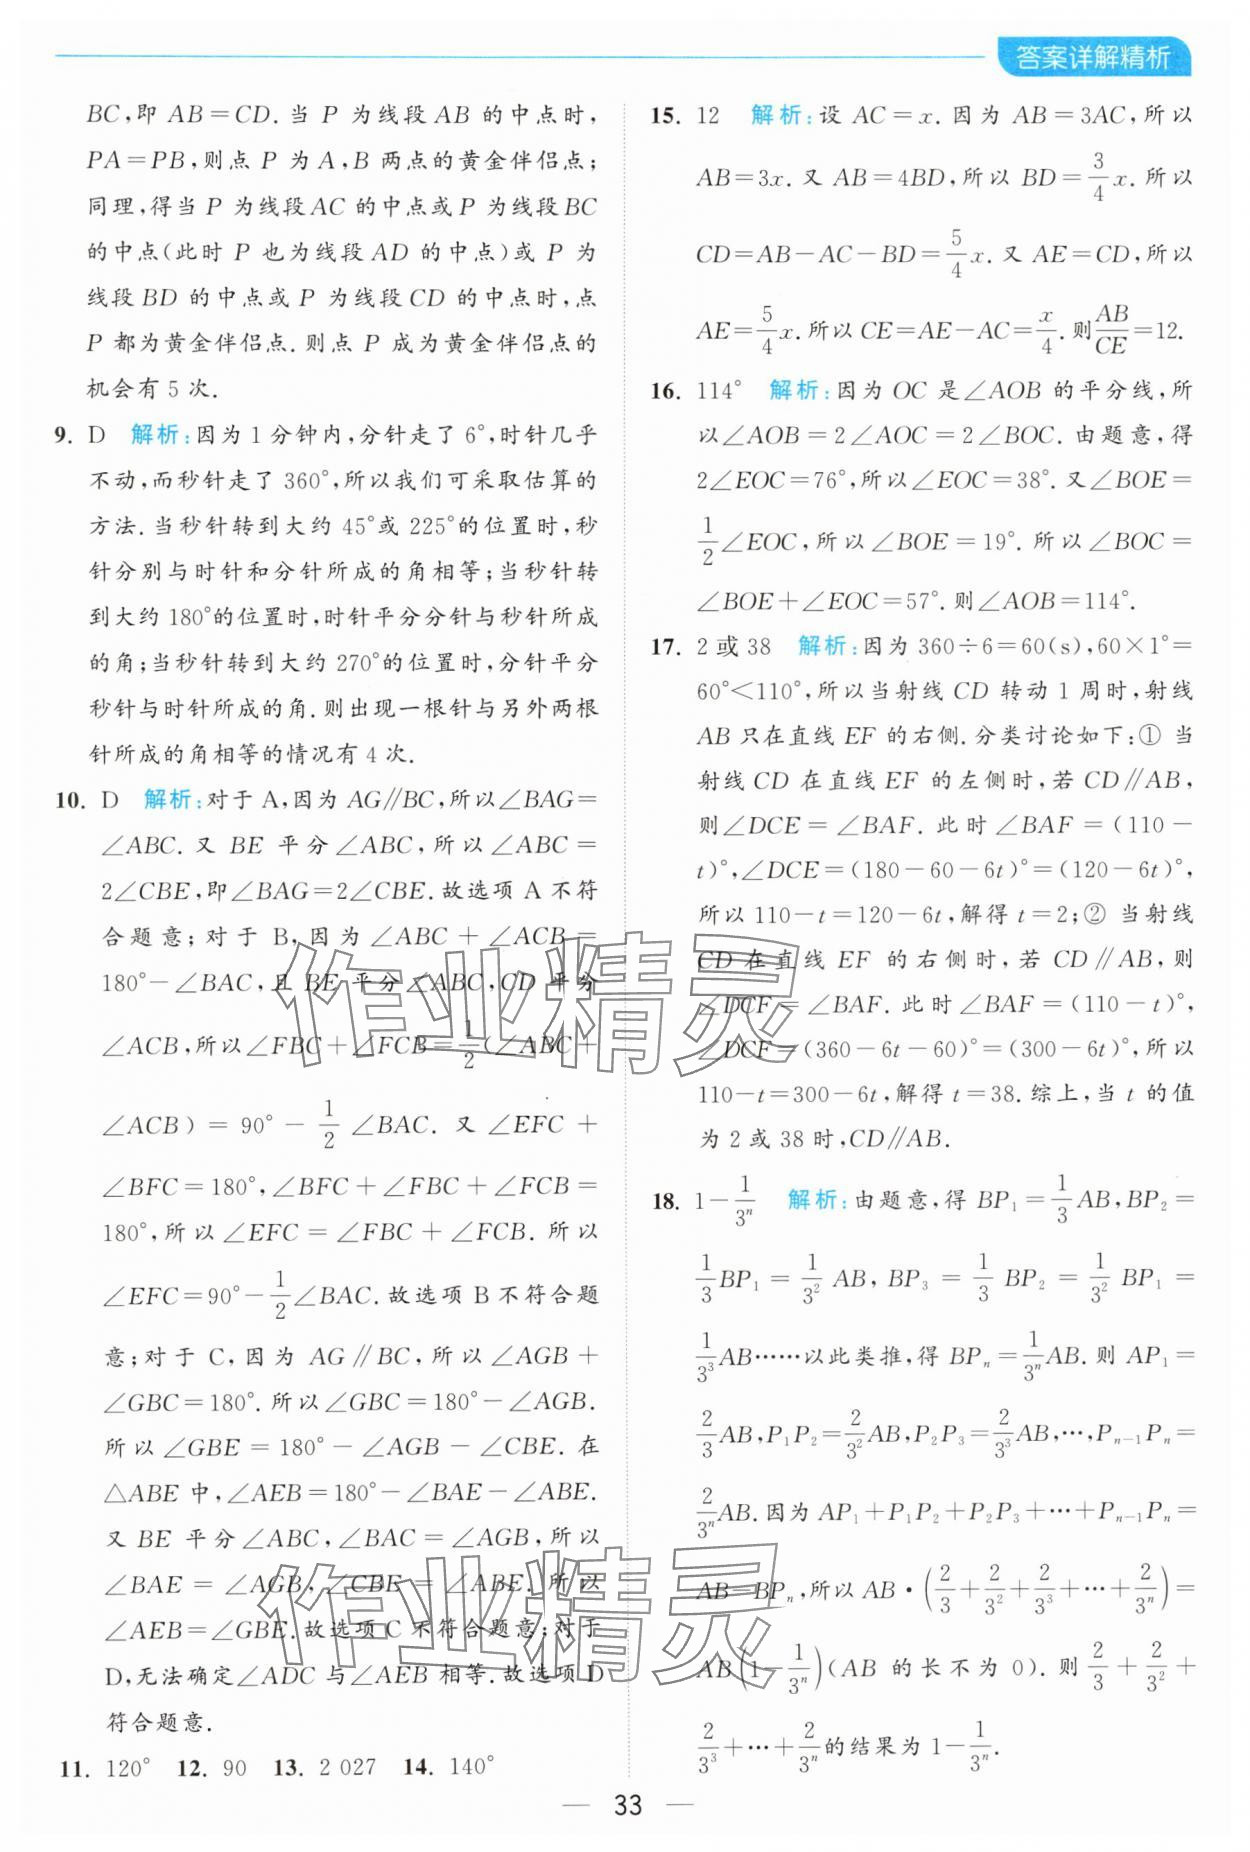 答案详解精析
BC,即 AB=CD. 当 P 为线段 AB 的中点时,
PA=PB,则点 P 为 A,B 两点的黄金伴侣点;
同理,得当 P 为线段 AC 的中点或 P 为线段 BC
的中点(此时 P 也为线段 AD 的中点)或 P 为
线段 BD 的中点或 P 为线段 CD 的中点时,点
P 都为黄金伴侣点. 则点 P 成为黄金伴侣点的
机会有 5 次.
9. D 解析:因为 1 分钟内,分针走了 6°,时针几乎
不动,而秒针走了 360°,所以我们可采取估算的
方法. 当秒针转到大约 45°或 225°的位置时,秒
针分别与时针和分针所成的角相等;当秒针转
到大约 180°的位置时,时针平分分针与秒针所成
的角;当秒针转到大约 270°的位置时,分针平分
秒针与时针所成的角. 则出现一根针与另外两根
针所成的角相等的情况有 4 次.
10. D 解析:对于 A,因为 AG∥BC,所以∠BAG=
∠ABC. 又 BE 平分∠ABC,所以∠ABC=
2∠CBE,即∠BAG=2∠CBE. 故选项 A 不符
合题意;对于 B,因为∠ABC+∠ACB=
180°-∠BAC,且 BE 平分∠ABC,CD 平分
∠ACB,所以∠FBC+∠FCB=1/2(∠ABC+
∠ACB)=90°-1/2∠BAC. 又∠EFC+
∠BFC=180°,∠BFC+∠FBC+∠FCB=
180°,所以∠EFC=∠FBC+∠FCB. 所以
∠EFC=90°-1/2∠BAC. 故选项 B 不符合题
意;对于 C,因为 AG∥BC,所以∠AGB+
∠GBC=180°. 所以∠GBC=180°-∠AGB.
所以∠GBE=180°-∠AGB-∠CBE. 在
△ABE 中,∠AEB=180°-∠BAE-∠ABE.
又 BE 平分∠ABC,∠BAC=∠AGB,所以
∠BAE=∠AGB,∠CBE=∠ABE. 所以
∠AEB=∠GBE. 故选项 C 不符合题意;对于
D,无法确定∠ADC 与∠AEB 相等. 故选项 D
符合题意.
11. 120° 12. 90 13. 2 027 14. 140°
15. 12 解析:设 AC=x. 因为 AB=3AC,所以
AB=3x. 又 AB=4BD,所以 BD=3/4x. 所以
CD=AB-AC-BD=5/4x. 又 AE=CD,所以
AE=5/4x. 所以 CE=AE-AC=x/4. 则AB/CE=12.
16. 114° 解析:因为 OC 是∠AOB 的平分线,所
以∠AOB=2∠AOC=2∠BOC. 由题意,得
2∠EOC=76°,所以∠EOC=38°. 又∠BOE=
1/2∠EOC,所以∠BOE=19°. 所以∠BOC=
∠BOE+∠EOC=57°. 则∠AOB=114°.
17. 2 或 38 解析:因为 360÷6=60(s),60×1°=
60°<110°,所以当射线 CD 转动 1 周时,射线
AB 只在直线 EF 的右侧. 分类讨论如下:① 当
射线 CD 在直线 EF 的左侧时,若 CD∥AB,
则∠DCE=∠BAF. 此时∠BAF=(110-
t)°,∠DCE=(180-60-6t)°=(120-6t)°,
所以 110-t=120-6t,解得 t=2;② 当射线
CD 在直线 EF 的右侧时,若 CD∥AB,则
∠DCF=∠BAF. 此时∠BAF=(110-t)°,
∠DCF=(360-6t-60)°=(300-6t)°,所以
110-t=300-6t,解得 t=38. 综上,当 t 的值
为 2 或 38 时,CD∥AB.
18. 1-1/3ⁿ 解析:由题意,得 BP₁=1/3AB,BP₂=
1/3BP₁=1/3²AB,BP₃=1/3BP₂=1/3²BP₁=
1/3³AB……以此类推,得 BPₙ=1/3ⁿAB. 则 AP₁=
2/3AB,P₁P₂=2/3²AB,P₂P₃=2/3³AB,…,Pₙ₋₁Pₙ=
2/3ⁿAB. 因为 AP₁+P₁P₂+P₂P₃+…+Pₙ₋₁Pₙ=
AB-BPₙ,所以 AB·(2/3+2/3²+2/3³+…+2/3ⁿ)=
AB(1-1/3ⁿ)(AB 的长不为 0). 则2/3+2/3²+
2/3³+…+2/3ⁿ的结果为 1-1/3ⁿ.
作业精灵
作业精灵
33